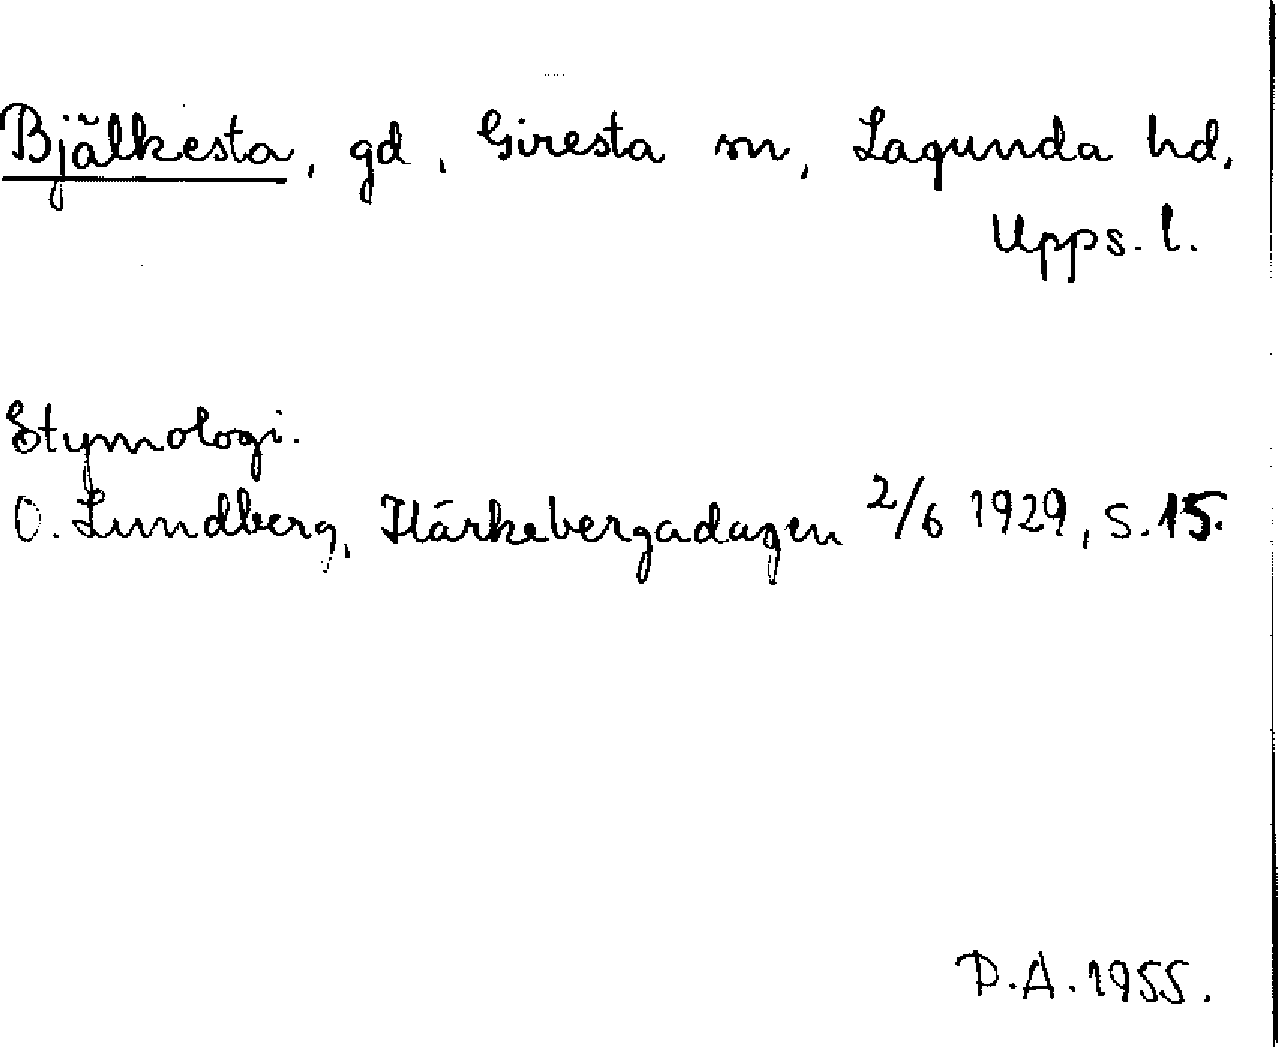 Bjälkesta, gd, Giresta sn, Lagunda hd,
Upps. l.
Etymologi.
O. Lundberg, Härkebergadagen 2/6 1929, s. 15.
P.A. 1955.